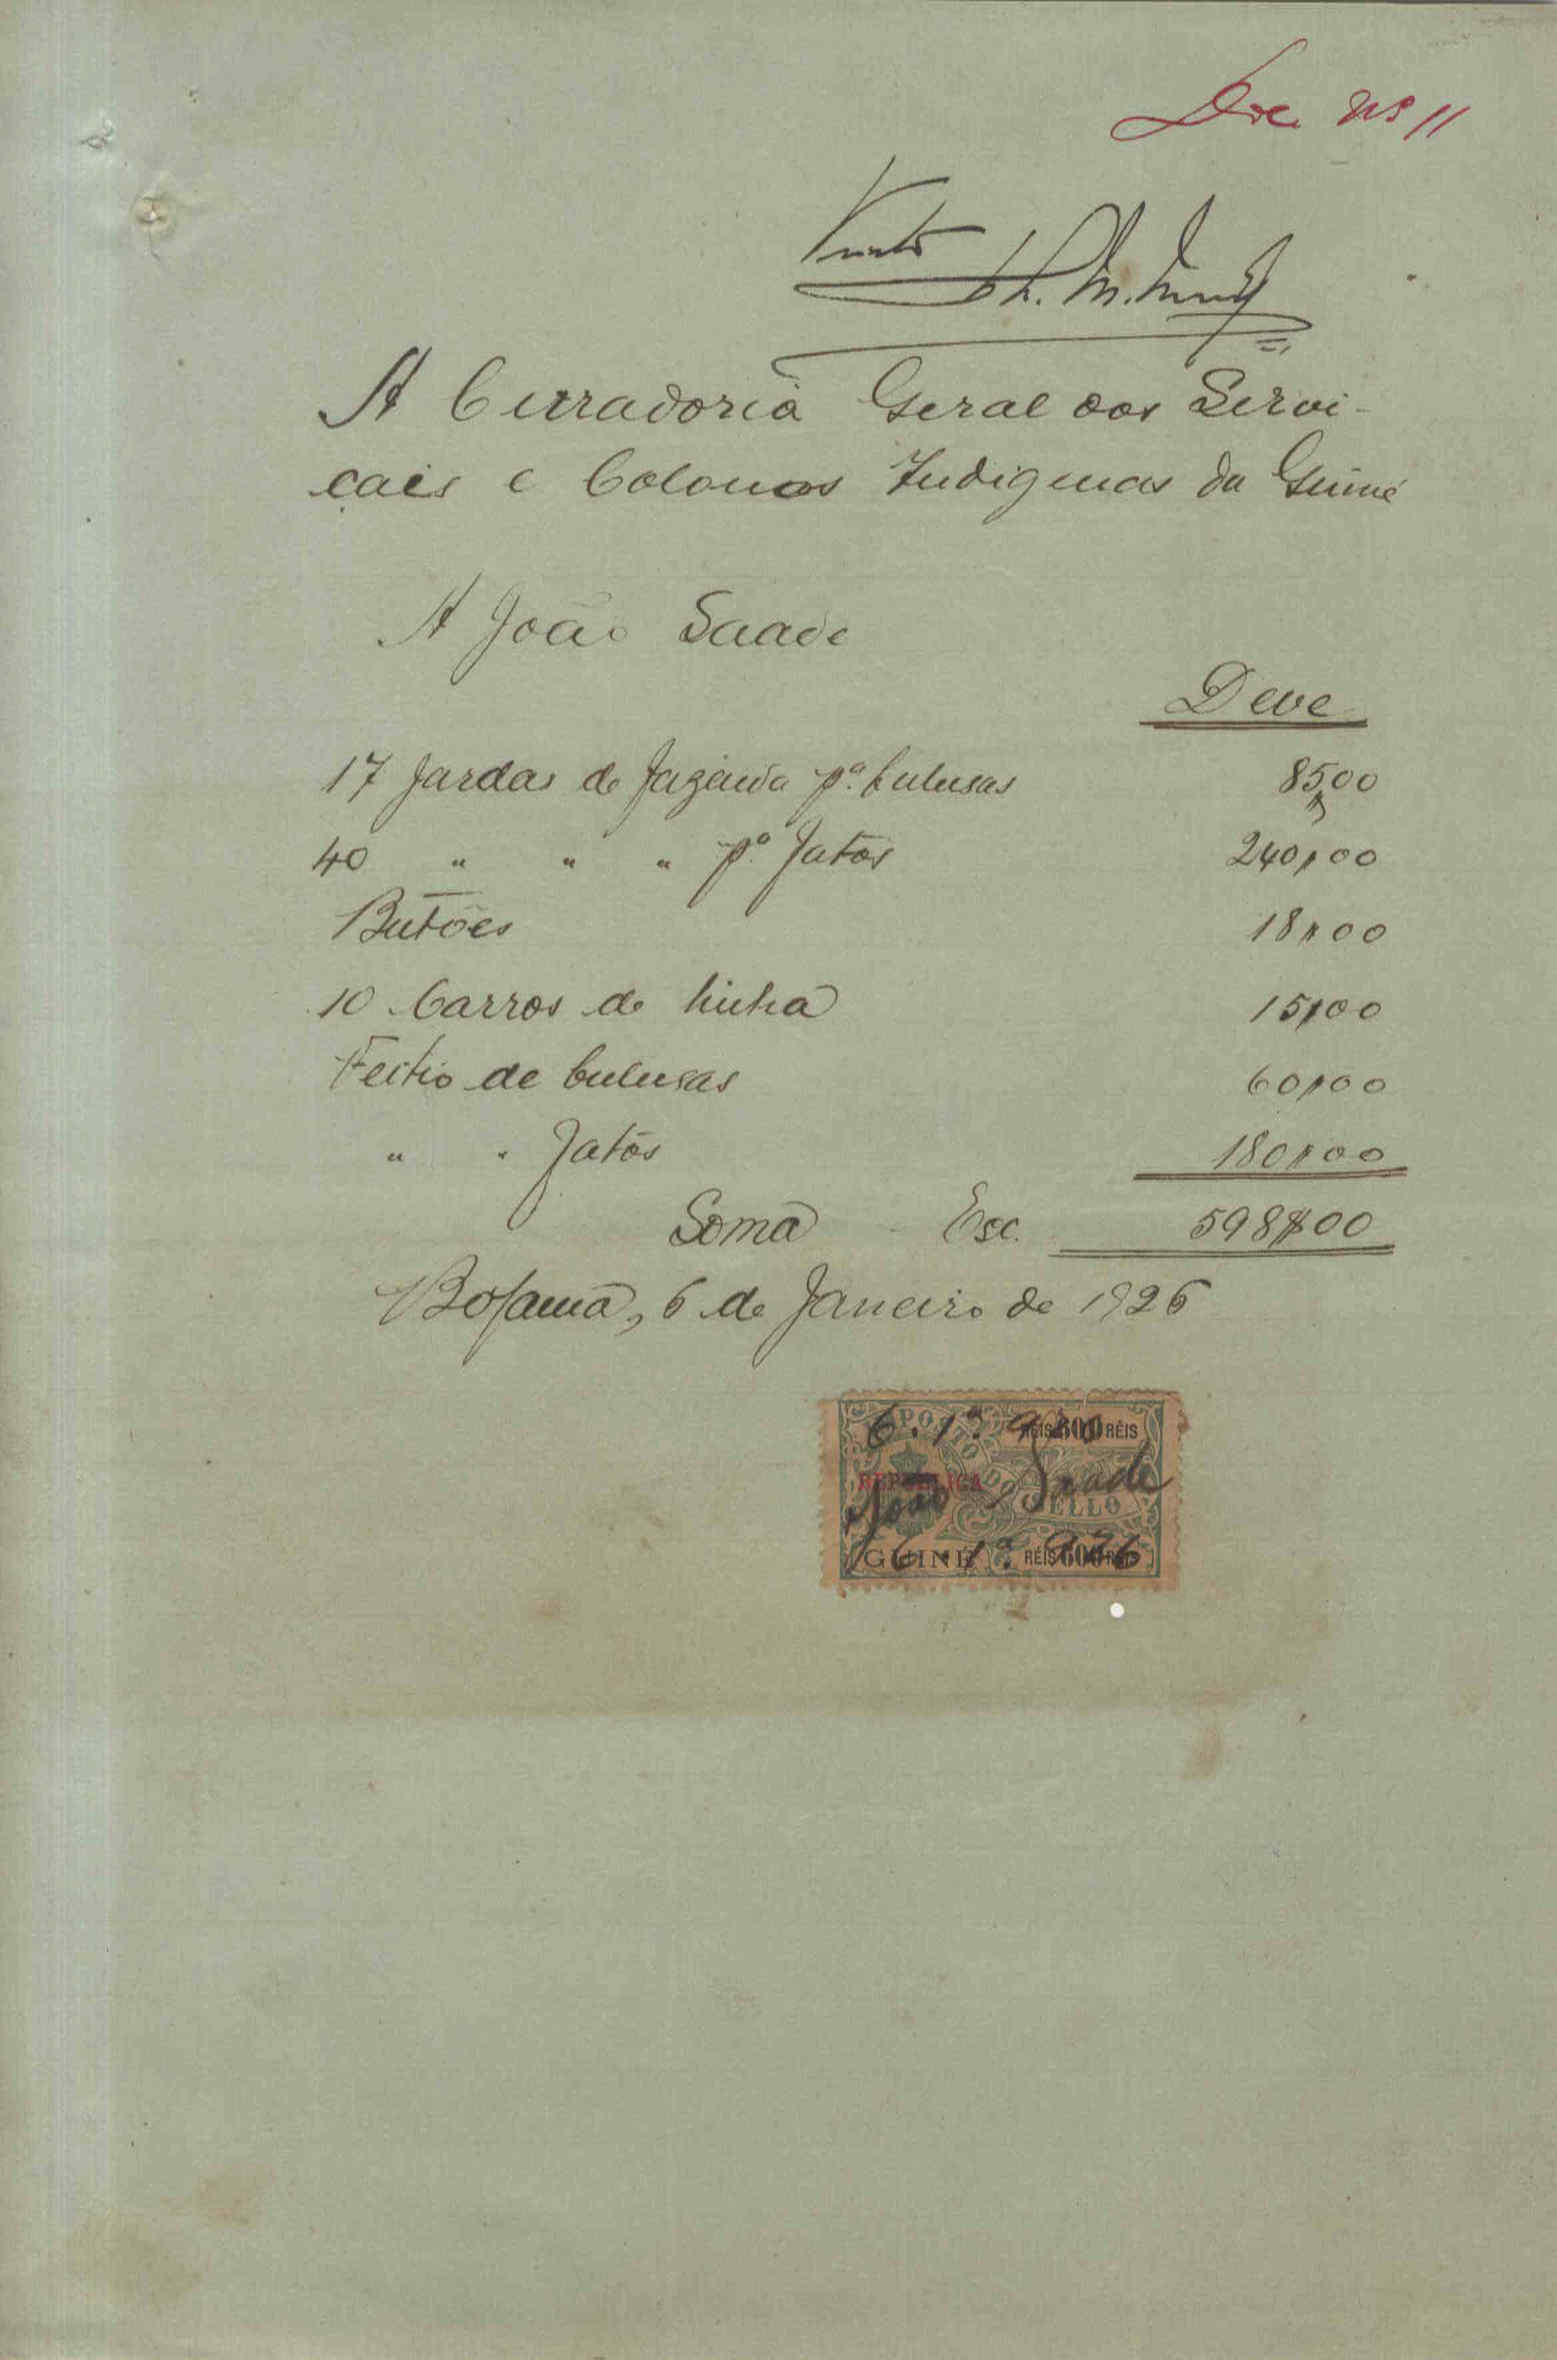 Doc nº 11
Visto
A Curradoria Geral dos Servi-
çais e Colonos Indigenas da Guiné
A João Saade
Deve
17 Jardas de fazenda pª bulusas 85$00
40 " " " pª fatos 240$00
Butões 18$00
10 Carros de linha 15$00
Feitio de bulusas 60$00
" " fatos 180$00
Soma Esc. 598$00
Bolama, 6 de Janeiro de 1926
IMPOSTO DO SELLO
RÉIS 600 RÉIS
REPUBLICA
GUINÉ RÉIS 600 RÉIS
6. 1º 926
João Saade
6. 1º 926